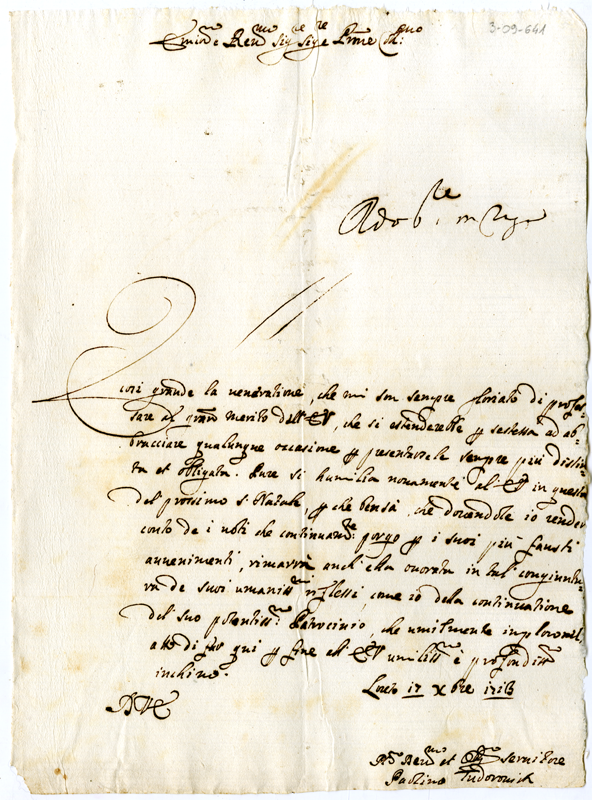 3-09-641
Emin.o e Rev.mo Sig.re Sig.re e P̄ne Col.mo
È
cosi grande la veneratione, che mi son sempre gloriato di profes-
sare al gran merito dell' EV, che si estenderebbe p sestessa ad ab-
bracciare qualunque occasione p presentarsele sempre più distin-
ta et obligata. Pure si humilia novamente al EV in questa
del prossimo S. Natale, p che pensa, che dovendole io render
conto de i voti che continuam.te porgo p i suoi più fausti
avvenimenti, rimarrà anch'ella onorata in tal congiuntu-
ra de suoi umaniss.mi riflessi, come io della continuatione
del suo potentiss.o Patrocinio, che umilmente imploro nel
atto di far qui p fine all' EV umiliss.o e profondiss.o
inchino.
17 Xbre
DVE
servitore
Paolino